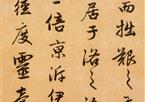 而拙艱之
居于洛之
倍京泝伊
徑度靈